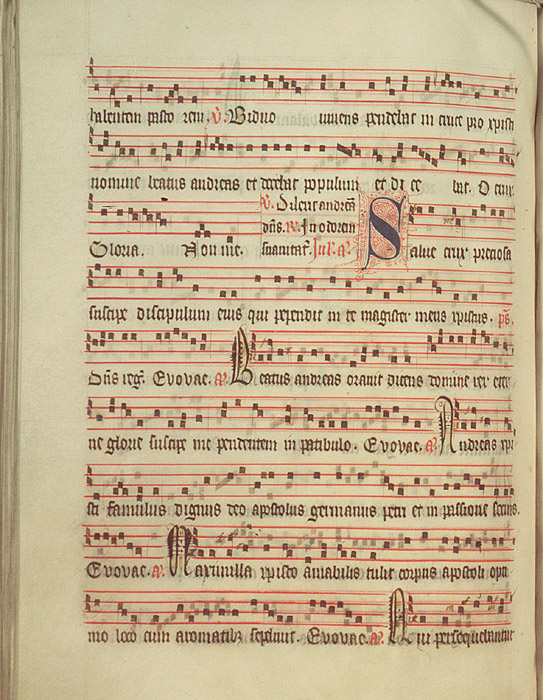 talentem pasto rem. V. Biduo uiuens pendebat in cruce pro xpisti
nomine beatus andreas et docebat populum et di ce bat. O crux
V. Dilexit andream
dns. R. In odorem
Gloria. A oui me. suauitat. In l. a. Salue crux preciosa
suscipe discipulum eius qui pependit in te magister meus xpistus. ps.
Dns reg. Evovae. a. Beatus andreas orauit dicens domine rex eter
ne glorie suscipe me pendentem in patibulo. Evovae. a. Andreas xpi
sti famulus dignus deo apostolus germanus petri et in passione socius.
Evovae. a. Maximilla xpisto amabilis tulit corpus apostoli opti
mo loco cum aromatibz sepeliuit. Evovae. a. Qui persequebantur